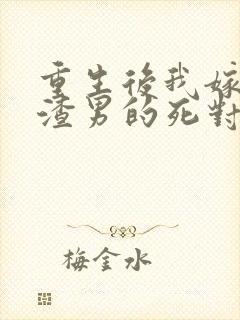 重生後我嫁
渣男的死對
梅金水